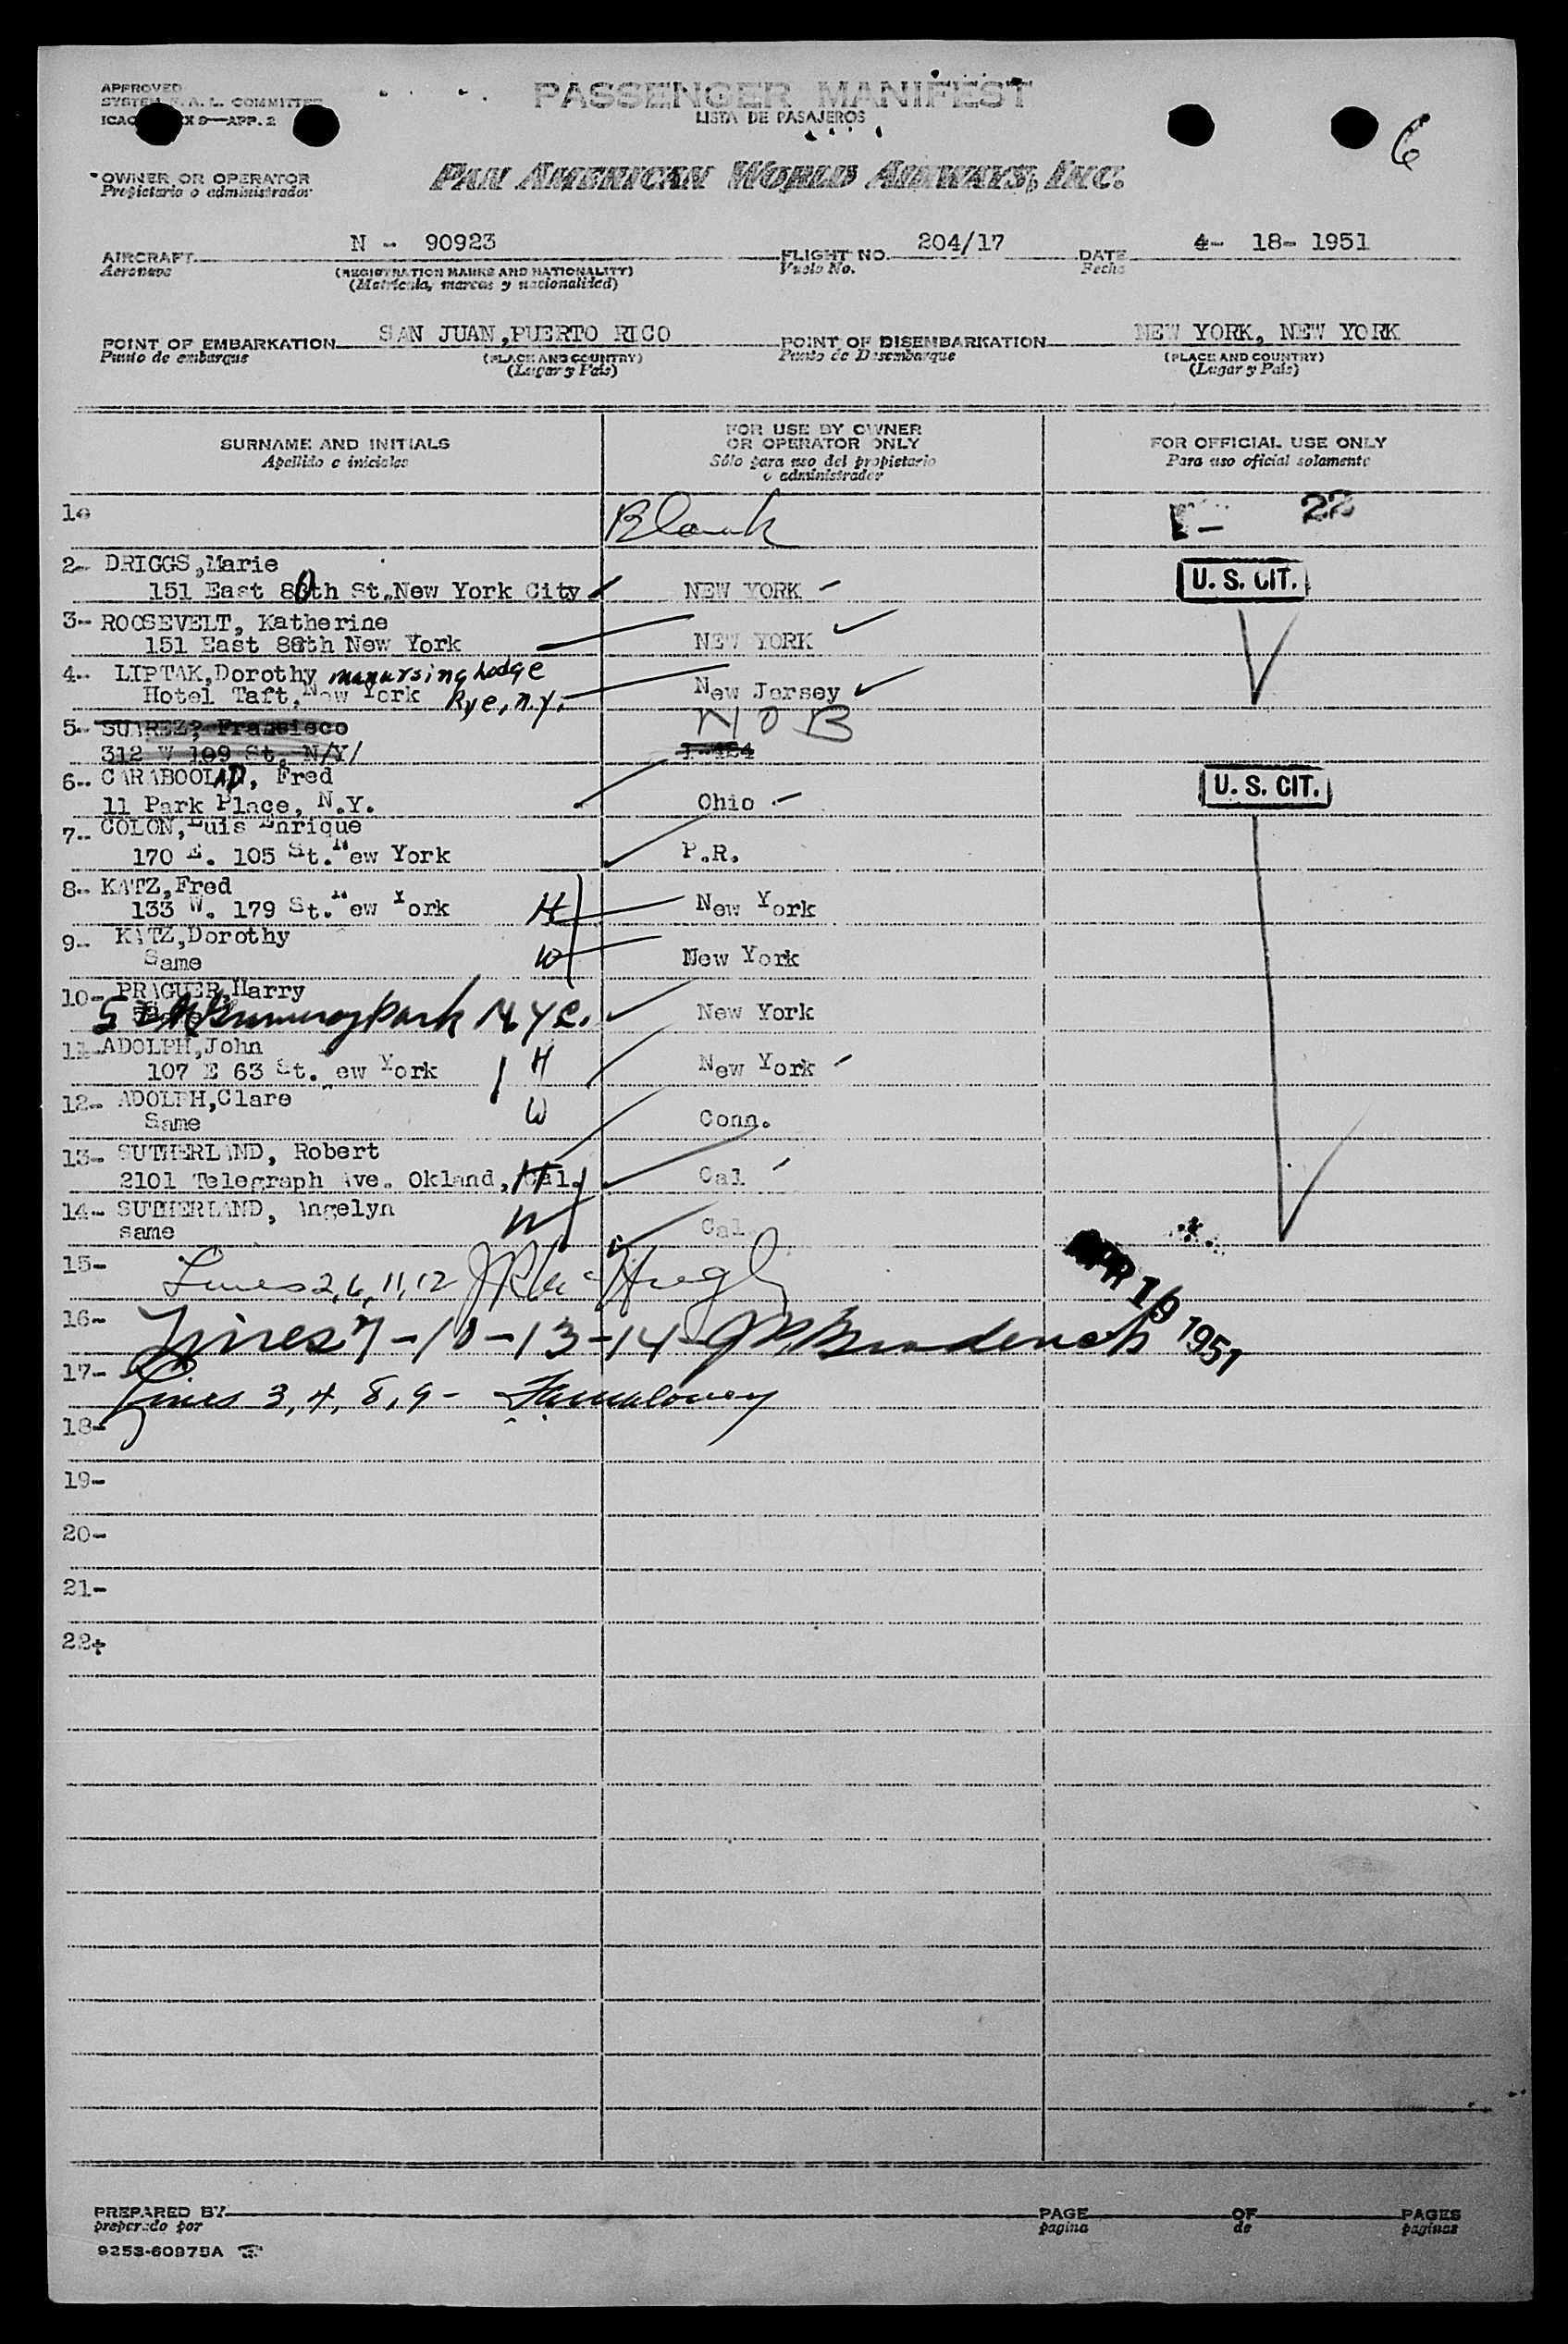 APPROVED
SYSTEM F. A. L. COMMITTEE
9—APP. 2
PASSENGER MANIFEST
LISTA DE PASAJEROS
6
OWNER OR OPERATOR
Propietario o administrador
PAN AMERICAN WORLD AIRWAYS, INC.
AIRCRAFT N - 90923 FLIGHT NO. 204/17 DATE 4- 18- 1951
Aeronave (REGISTRATION MARKS AND NATIONALITY) Vuelo No. Fecha
(Matricula, marcas y nacionalidad)
POINT OF EMBARKATION SAN JUAN, PUERTO RICO POINT OF DISEMBARKATION NEW YORK, NEW YORK
Punto de embarque (PLACE AND COUNTRY) Punto de Desembarque (PLACE AND COUNTRY)
(Lugar y Pais) (Lugar y Pais)
SURNAME AND INITIALS FOR USE BY OWNER OR OPERATOR ONLY FOR OFFICIAL USE ONLY
Apellido e iniciales Sólo para uso del propietario o administrador Para uso oficial solamente
1- Blank 22
2- DRIGGS, Marie
151 East 80th St. New York City NEW YORK U. S. CIT.
3- ROOSEVELT, Katherine
151 East 80th New York NEW YORK
4- LIPTAK, Dorothy manursing Lodge
Hotel Taft, New York Rye, n.y. New Jersey
5- SUAREZ, Francisco NOB
312 W 109 St. N/Y/
6- CARABOOLAD, Fred
11 Park Place, N.Y. Ohio U. S. CIT.
7- COLON, Luis Enrique
170 E. 105 St. New York P.R.
8- KATZ, Fred
133 W. 179 St. New York H New York
9- KATZ, Dorothy
Same W New York
10- PRAGUER, Harry
Park N.Y.C. New York
11- ADOLPH, John
107 E 63 St. ew York H New York
12- ADOLPH, Clare
Same W Conn.
13- SUTHERLAND, Robert
2101 Telegraph Ave. Okland, Cal. H Cal
14- SUTHERLAND, Angelyn
same W Cal
15- Lines 2, 6, 11, 12
APR 19 1951
16- Lines 7-10-13-14
17- Lines 3, 4, 8, 9-
18-
19-
20-
21-
22-
PREPARED BY PAGE OF PAGES
preparado por pagina de paginas
9253-60975A